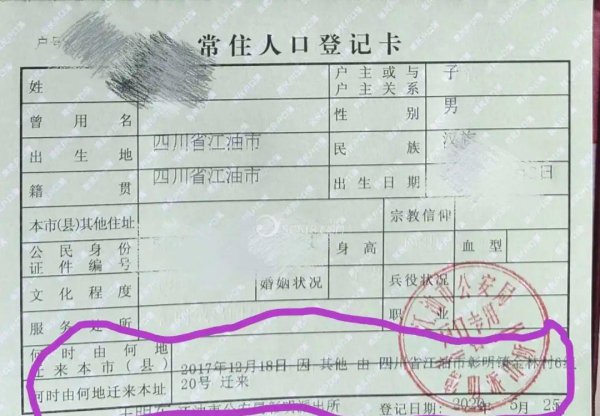 户号
常住人口登记卡
姓 户主或与户主关系 子
曾用名 性别 男
出生地 四川省江油市 民族 汉族
籍贯 四川省江油市 出生日期 日
本市(县)其他住址 宗教信仰
公民身份证件编号 身高 血型
文化程度 婚姻状况 兵役状况
服务处所 职业
何时由何地迁来本市(县)
何时由何地迁来本址 2017年12月18日 因 其他 由 四川省江油市彰明镇玉林村6组
20号 迁来
江油市公安局彰明派出所 登记日期: 2020 5月 25
江油市公安局
户口专用
彰明派出所